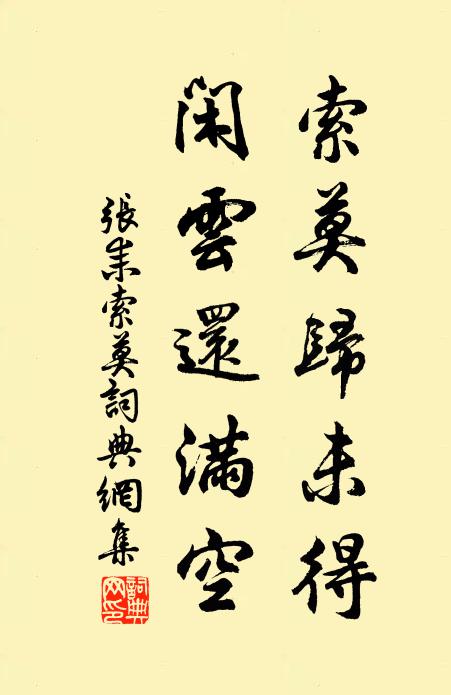 索莫歸未得
閑雲還滿空
張耒索莫詞典網集